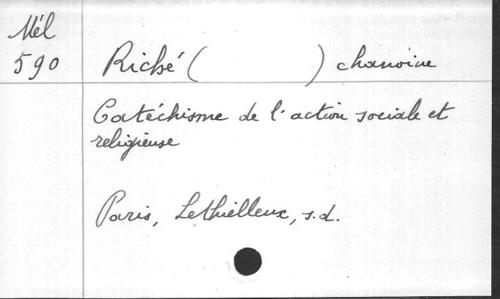 Mél
590
Riché ( ) chanoine
Catéchisme de l'action sociale et
religieuse
Paris, Lethielleux, s.d.